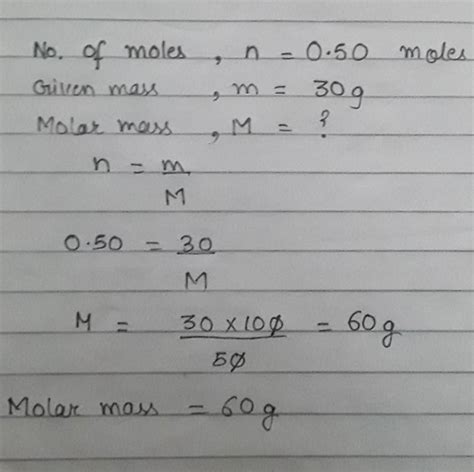 No. of moles , n = 0.50 moles
Given mass , m = 30g
Molar mass , M = ?
n = m/M
0.50 = 30/M
M = 30 x 100/50 = 60g
Molar mass = 60g